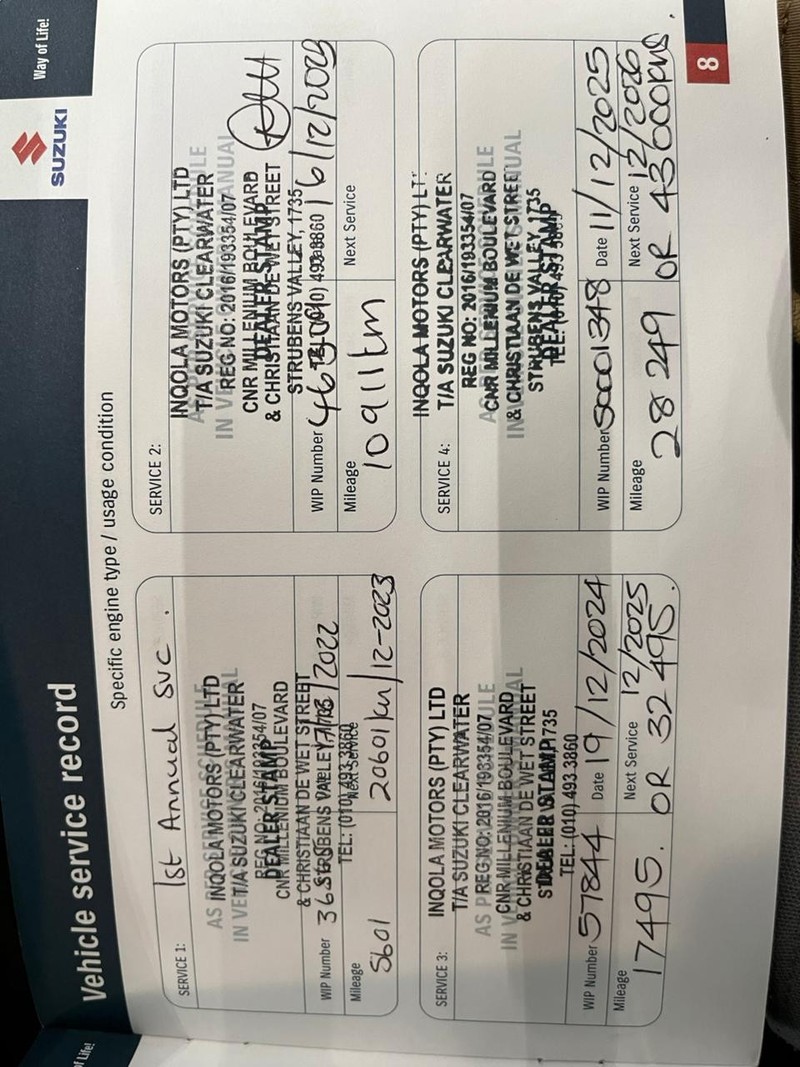 Way of Life!
SUZUKI
Vehicle service record
Specific engine type / usage condition
SERVICE 1: 1st Annual SVC.
AS PER SERVICE SCHEDULE
INQOLA MOTORS (PTY) LTD
T/A SUZUKI CLEARWATER
REG NO: 2016/193354/07
DEALER STAMP
CNR MILLENIUM BOULEVARD
& CHRISTIAAN DE WET STREET
STRUBENS VALLEY, 1735
TEL: (010) 493 3860
WIP Number
/2022
Mileage 5601
Next Service 20601km/12-2023
SERVICE 2:
INQOLA MOTORS (PTY) LTD
T/A SUZUKI CLEARWATER
REG NO: 2016/193354/07
CNR MILLENIUM BOULEVARD
DEALER STAMP
& CHRISTIAAN DE WET STREET
STRUBENS VALLEY, 1735
TEL: (010) 493 3860
WIP Number
Mileage 10911km
Next Service
SERVICE 3:
INQOLA MOTORS (PTY) LTD
T/A SUZUKI CLEARWATER
REG NO: 2016/193354/07
CNR MILLENIUM BOULEVARD
& CHRISTIAAN DE WET STREET
DEALER STAMP
1735
TEL: (010) 493 3860
WIP Number 57844 Date 19/12/2024
Mileage 17495. Next Service 12/2025
OR 32495.
SERVICE 4:
INQOLA MOTORS (PTY) LT
T/A SUZUKI CLEARWATER
REG NO: 2016/193354/07
CNR MILLENIUM BOULEVARD
& CHRISTIAAN DE WET STREET
STRUBENS VALLEY, 1735
DEALER STAMP
WIP Number S0001348 Date 11/12/2025
Mileage 28 249 Next Service 12/2026
OR 43000
8